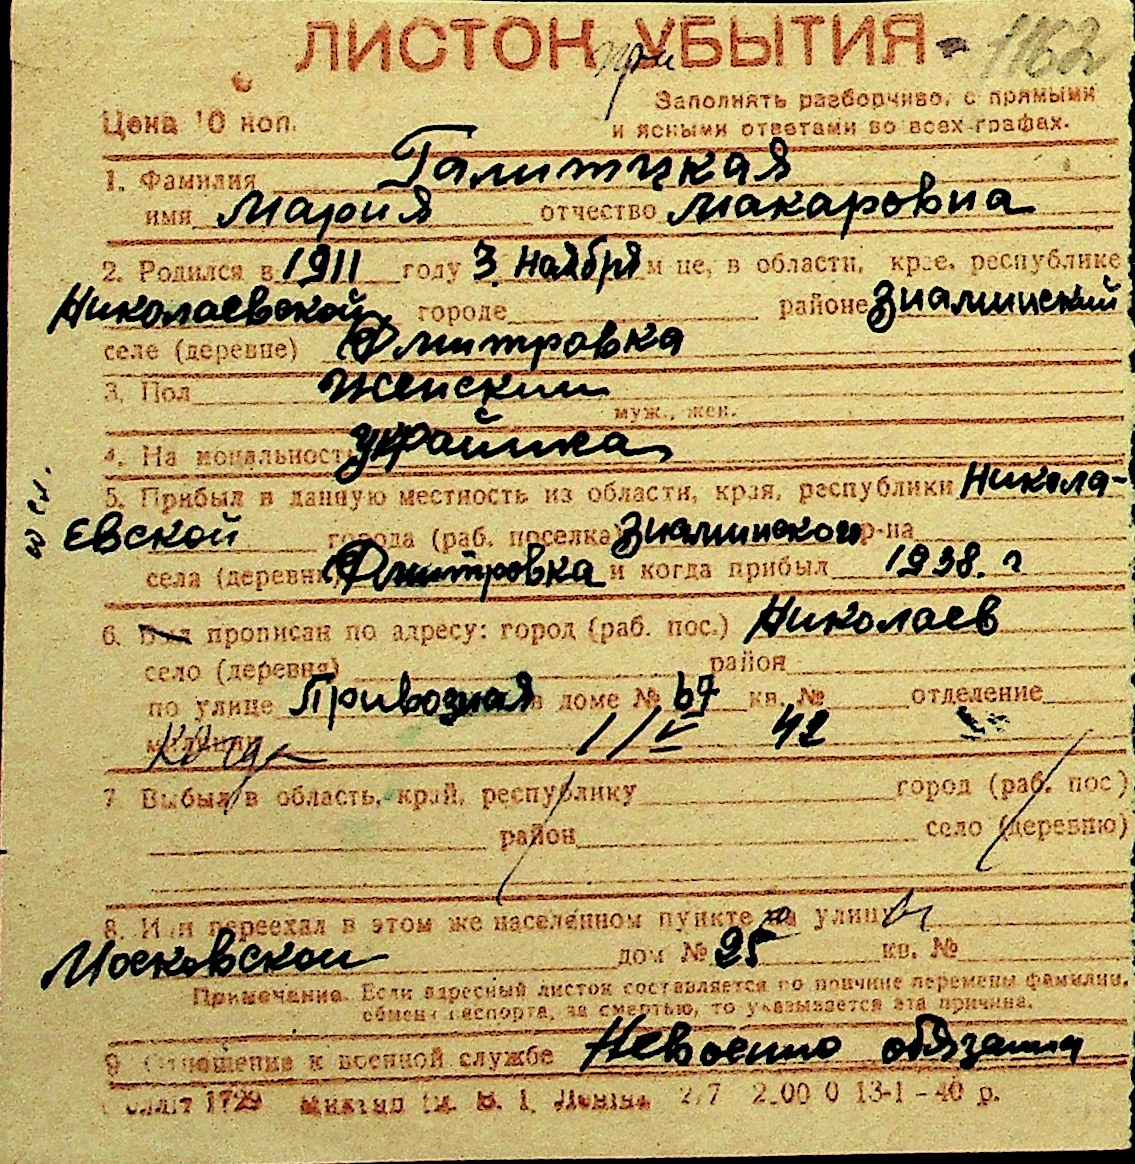 ЛИСТОК при УБЫТИЯ 1162
Заполнять разборчиво, с прямыми
Цена 10 коп. и ясными ответами во всех графах.
1. Фамилия Галитцкая
имя Мария отчество Макаровна
2. Родился в 1911 году 3 ноября м-це, в области, крае, республике
Николаевской городе районе Знаминский
селе (деревне) Дмитровка
3. Пол Женский
муж., жен.
4. Национальность украинка
5. Прибыл в данную местность из области, края, республики Никола-
евской города (раб. поселка) Знаминского р-на
села (деревни) Дмитровка и когда прибыл 1938. г
6. Был прописан по адресу: город (раб. пос.) Николаев
село (деревня) район
по улице Привозная в доме № 67 кв. № отделение
милиции 1/IV 42
7. Выбыл в область, край, республику город (раб. пос)
район село (деревню)
8. Или переехал в этом же населенном пункте на улицу
Московской дом № 25 кв. №
Примечание. Если адресный листок составляется по причине перемены фамилии,
обмена паспорта, за смертью, то указывается эта причина.
9. Отношение к военной службе Невоенно обязанна
1729 им. В. І. Леніна 2/7 2.00 0 13-1-40 р.